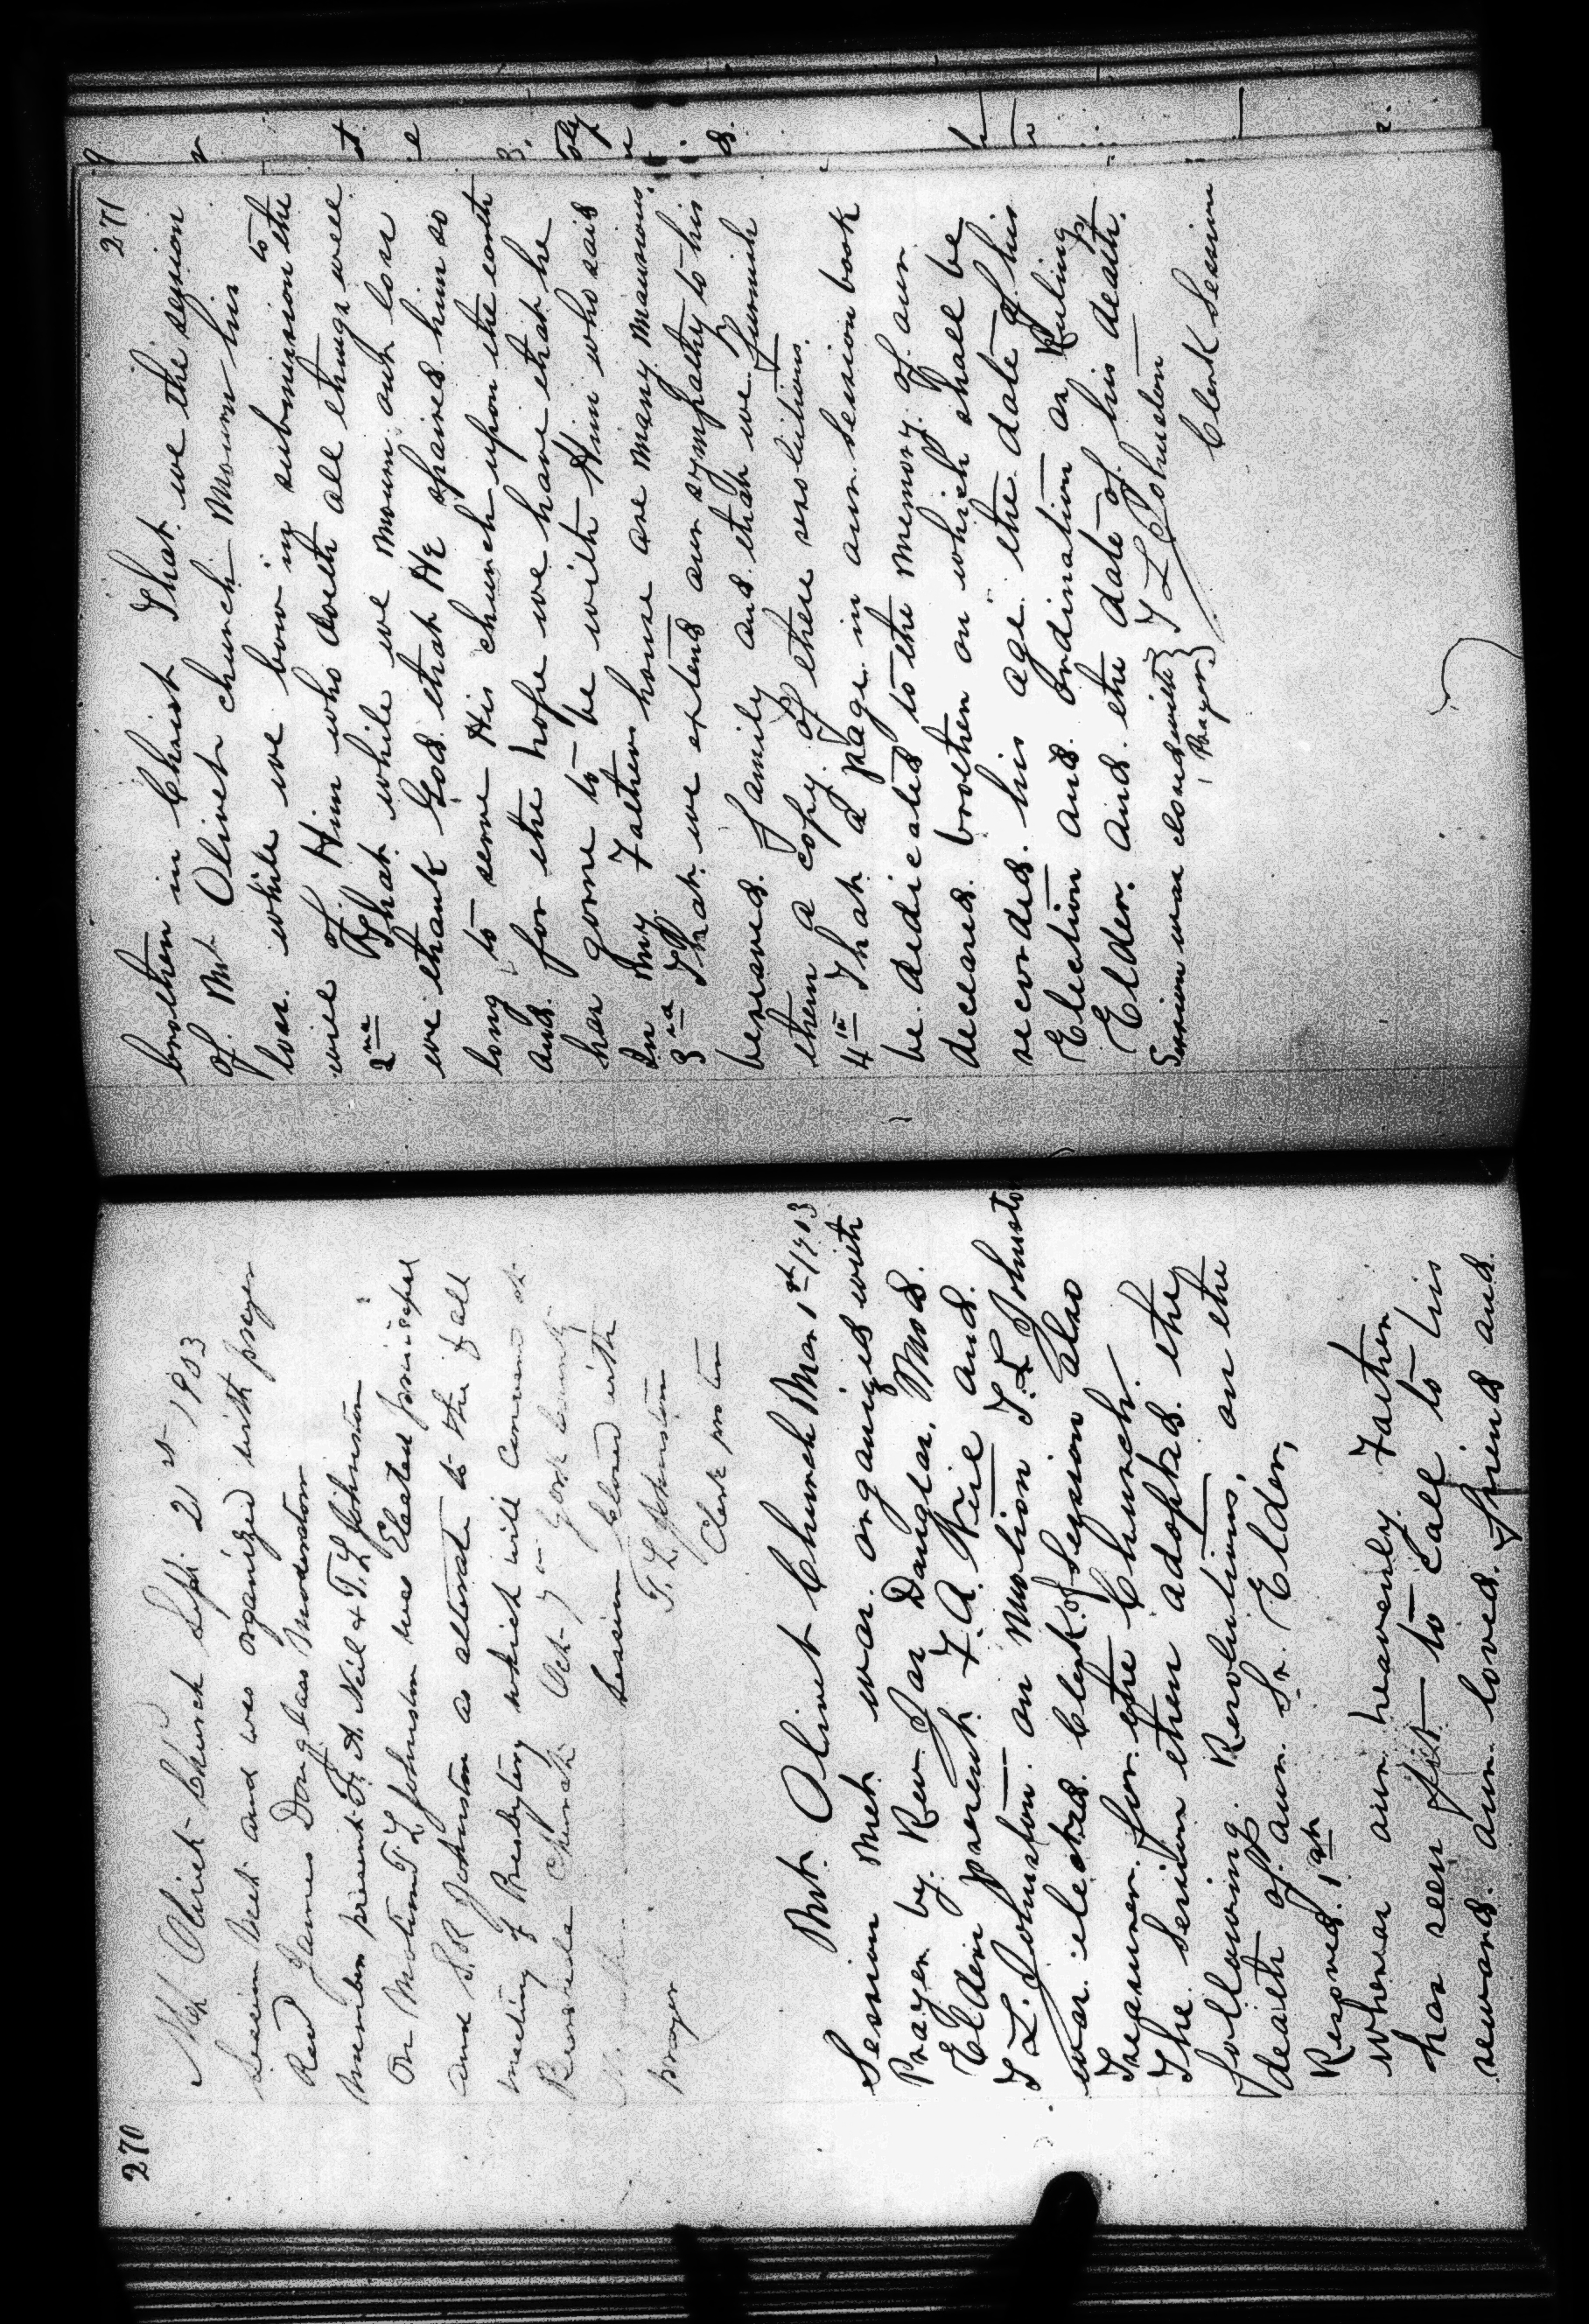 270
Mt Olivet Church Sept 21st 1903
Session met and was organized with prayer
Rev James Douglass Moderator
Members present F. A. Neil & T. L Johnston
On Motion T L Johnston was Elected principal
and S. R Johnston as alternate to the fall
meeting of Presbytery which will convene at
Church Oct 7th York County
Session closed with
prayer T. L Johnston
Clerk pro tem
Mt Olivet Church Mar 1st 1903
Session met was organized with
Prayer by Rev Jas Douglas. Mod.
Elders present F. A. Neil and
T L. Johnston. on Motion T. L Johnston
was elected Clerk of Session also
Treasurer for the Church.
The Session then adopted the
following Resolutions, on the
death of our Sr. Elder,
Resolved. 1st
Whereas our heavenly Father
has seen fit to Call to his
reward our loved friend and
271
brother in Christ That we the session
of Mt Olivet church Mourn his
loss while we bow in submission to the
will of Him who doeth all things well
2nd That while we mourn our loss
we thank God that He spaired him so
long to serve His church upon the earth
and for the hope we have that he
has gone to be with Him who said
In my Fathers house are many mansions.
3rd That we extend our sympathy to his
bereaved family and that we furnish
them a copy of these resolutions.
4th That a page in our session book
be dedicated to the memory of our
deceased brother on which shall be
recorded his age the date of his
Election and Ordination as Ruling
Elder and the date of his death.
Session was closed with Prayer T L Johnston
Clerk Session